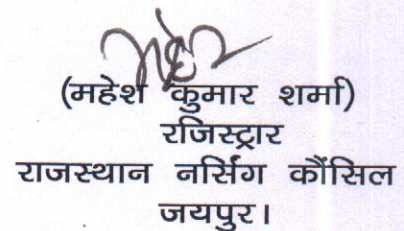 (महेश कुमार शर्मा)
रजिस्ट्रार
राजस्थान नर्सिंग कौंसिल
जयपुर।